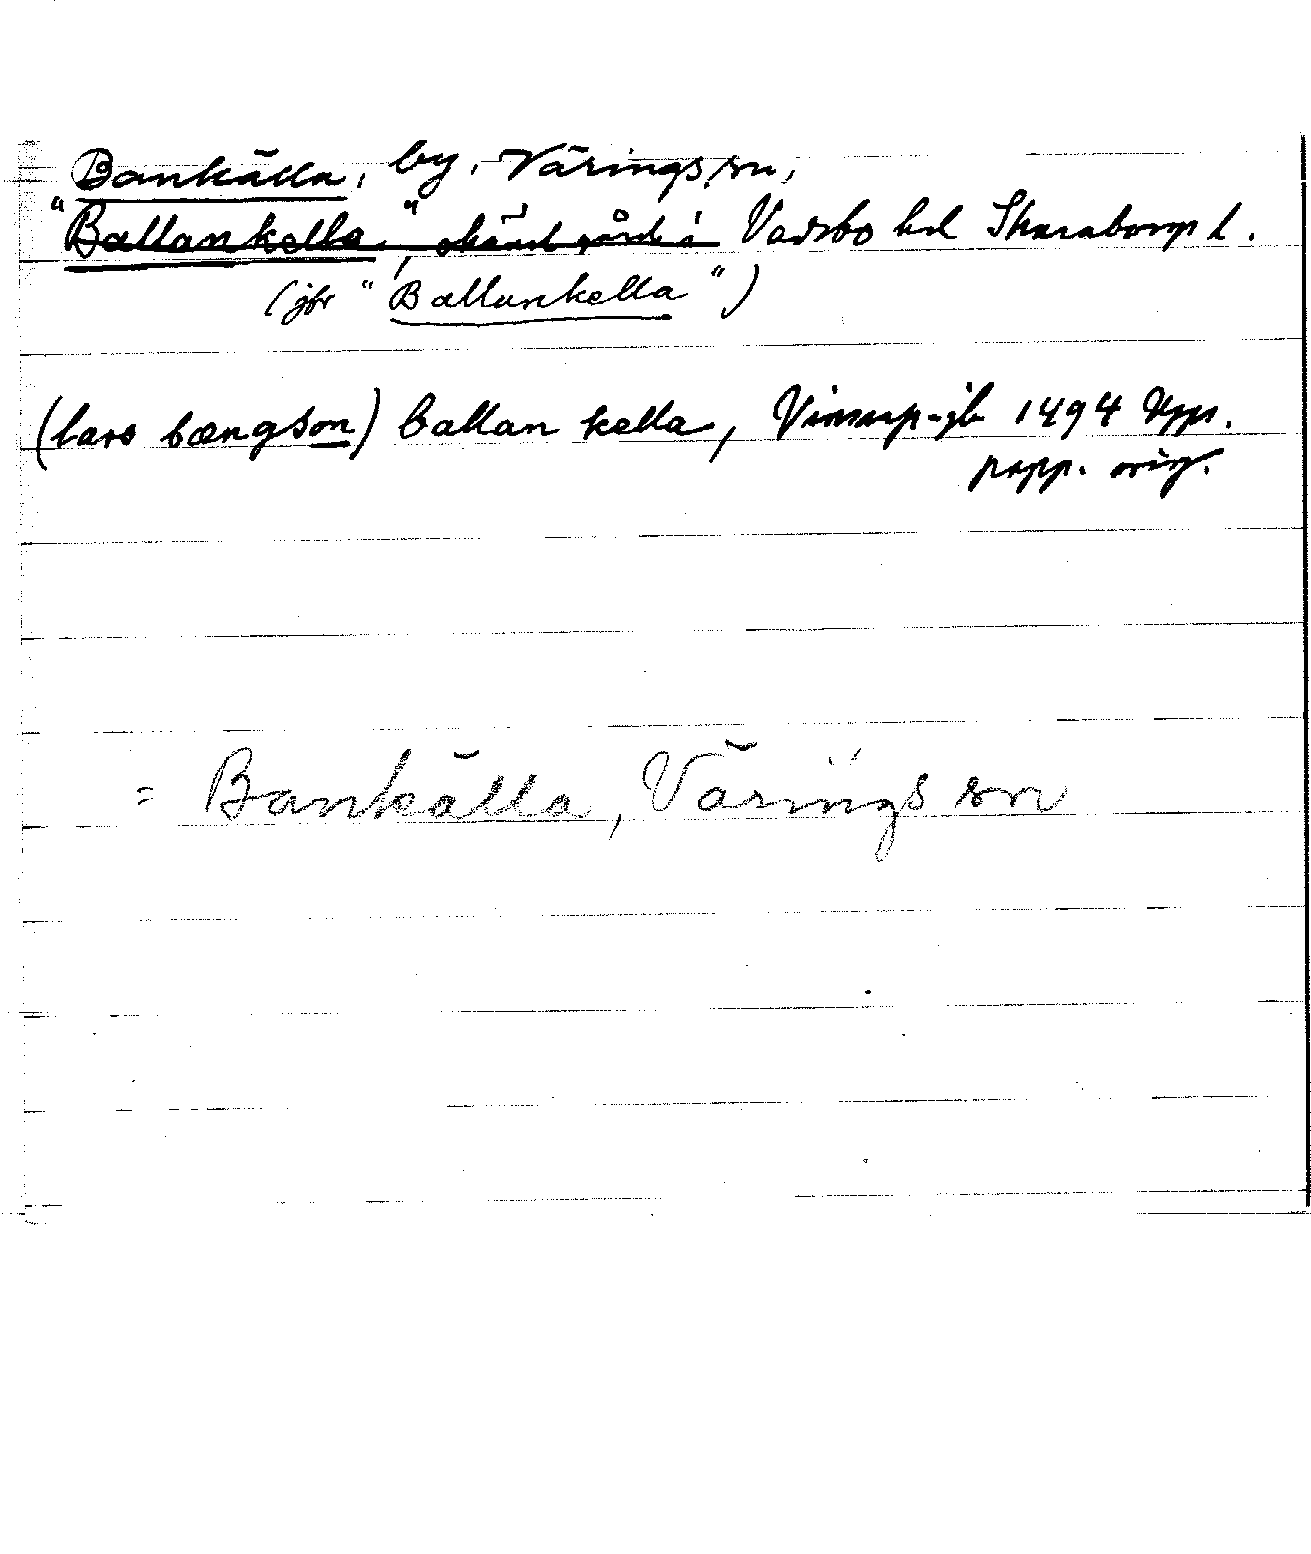 Bankälla, by, Värings sn,
"Ballankella", okänd gård i Vadsbo hd Skaraborgs l.
(jfr "Ballankella")
(lars bængson) ballan kella, Vinsarp-jb 1494 Upps.
papp. orig.
= Bankälla, Värings sn